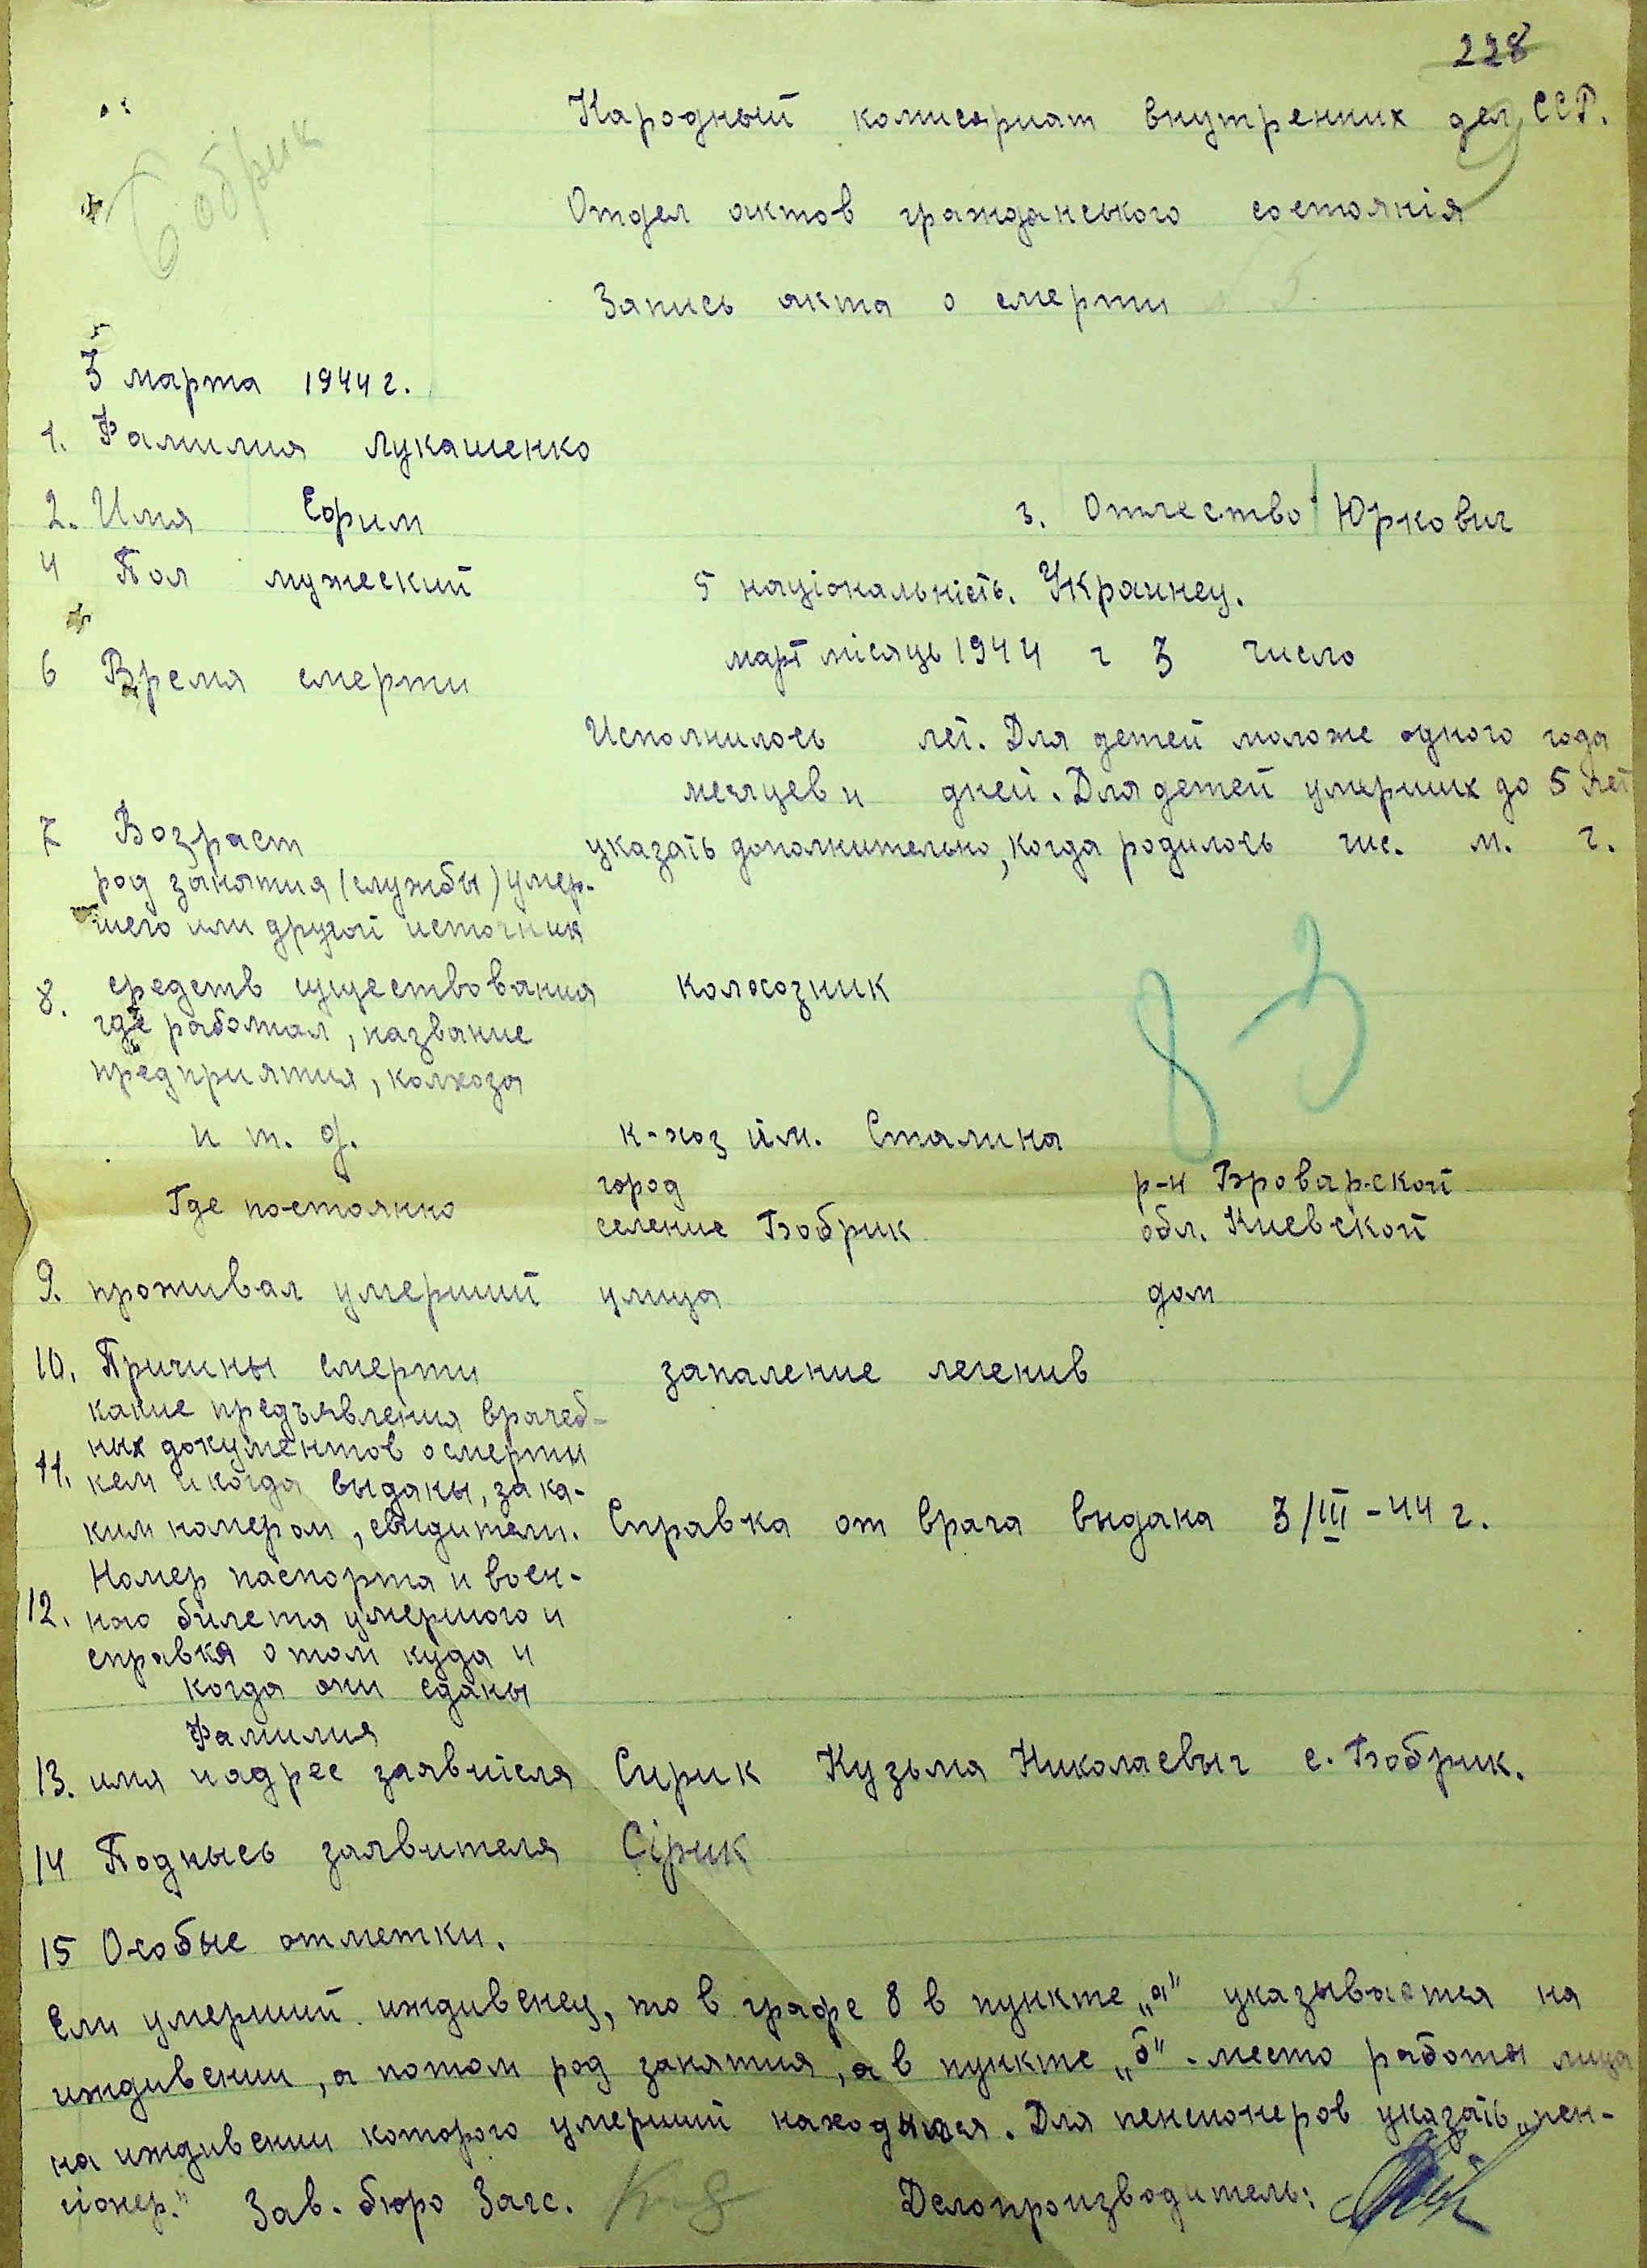 228
Народный комисариат внутренних дел ССР.
Бобрик
Отдел актов гражданського состоянія
Запись акта о смерти 5
3 марта 1944 г.
1. Фамилия Лукашенко
2. Имя Ефим 3. Отчество Юркович
4 Пол мужеский 5 національність. Украинец.
6 Время смерти март місяць 1944 г 3 число
Исполнилось лет. Для детей моложе одного года
месяцев и дней. Для детей умерших до 5 лет
7 Возраст указать дополнительно, когда родилось чис. м. г.
род занятия (службы) умер-
шего или другой источник
8. средств существования колхозник
где работал, название
предприятия, колхоза
8-3
и т. д. к-хоз им. Сталина
город р-н Броварской
Где постоянно
селение Бобрик обл. Киевской
9. проживал умерший улица дом
10. Причины смерти запаление легенив
какие предъявления врачеб-
ных документов о смерти
11. кем и когда выданы, за ка-
ким номером, свидители. Справка от врача выдана 3/III-44 г.
Номер паспорта и воен-
12. ного билета умершого и
справка о том куда и
когда они сданы
Фамилия
13. имя и адрес заявтеля Сирик Кузьма Николаевыч с. Бобрик.
14 Подпысь заявителя Сірик
15 Особые отметки.
Если умерший иждивенец, то в графе 8 в пункте „а" указывается на
иждивении, а потом род занятия, а в пункте „б" - место работы лица
на иждивении которого умерший находился. Для пенсионеров указать „пен-
сіонер." Зав. бюро Загс. Делопроизводитель: